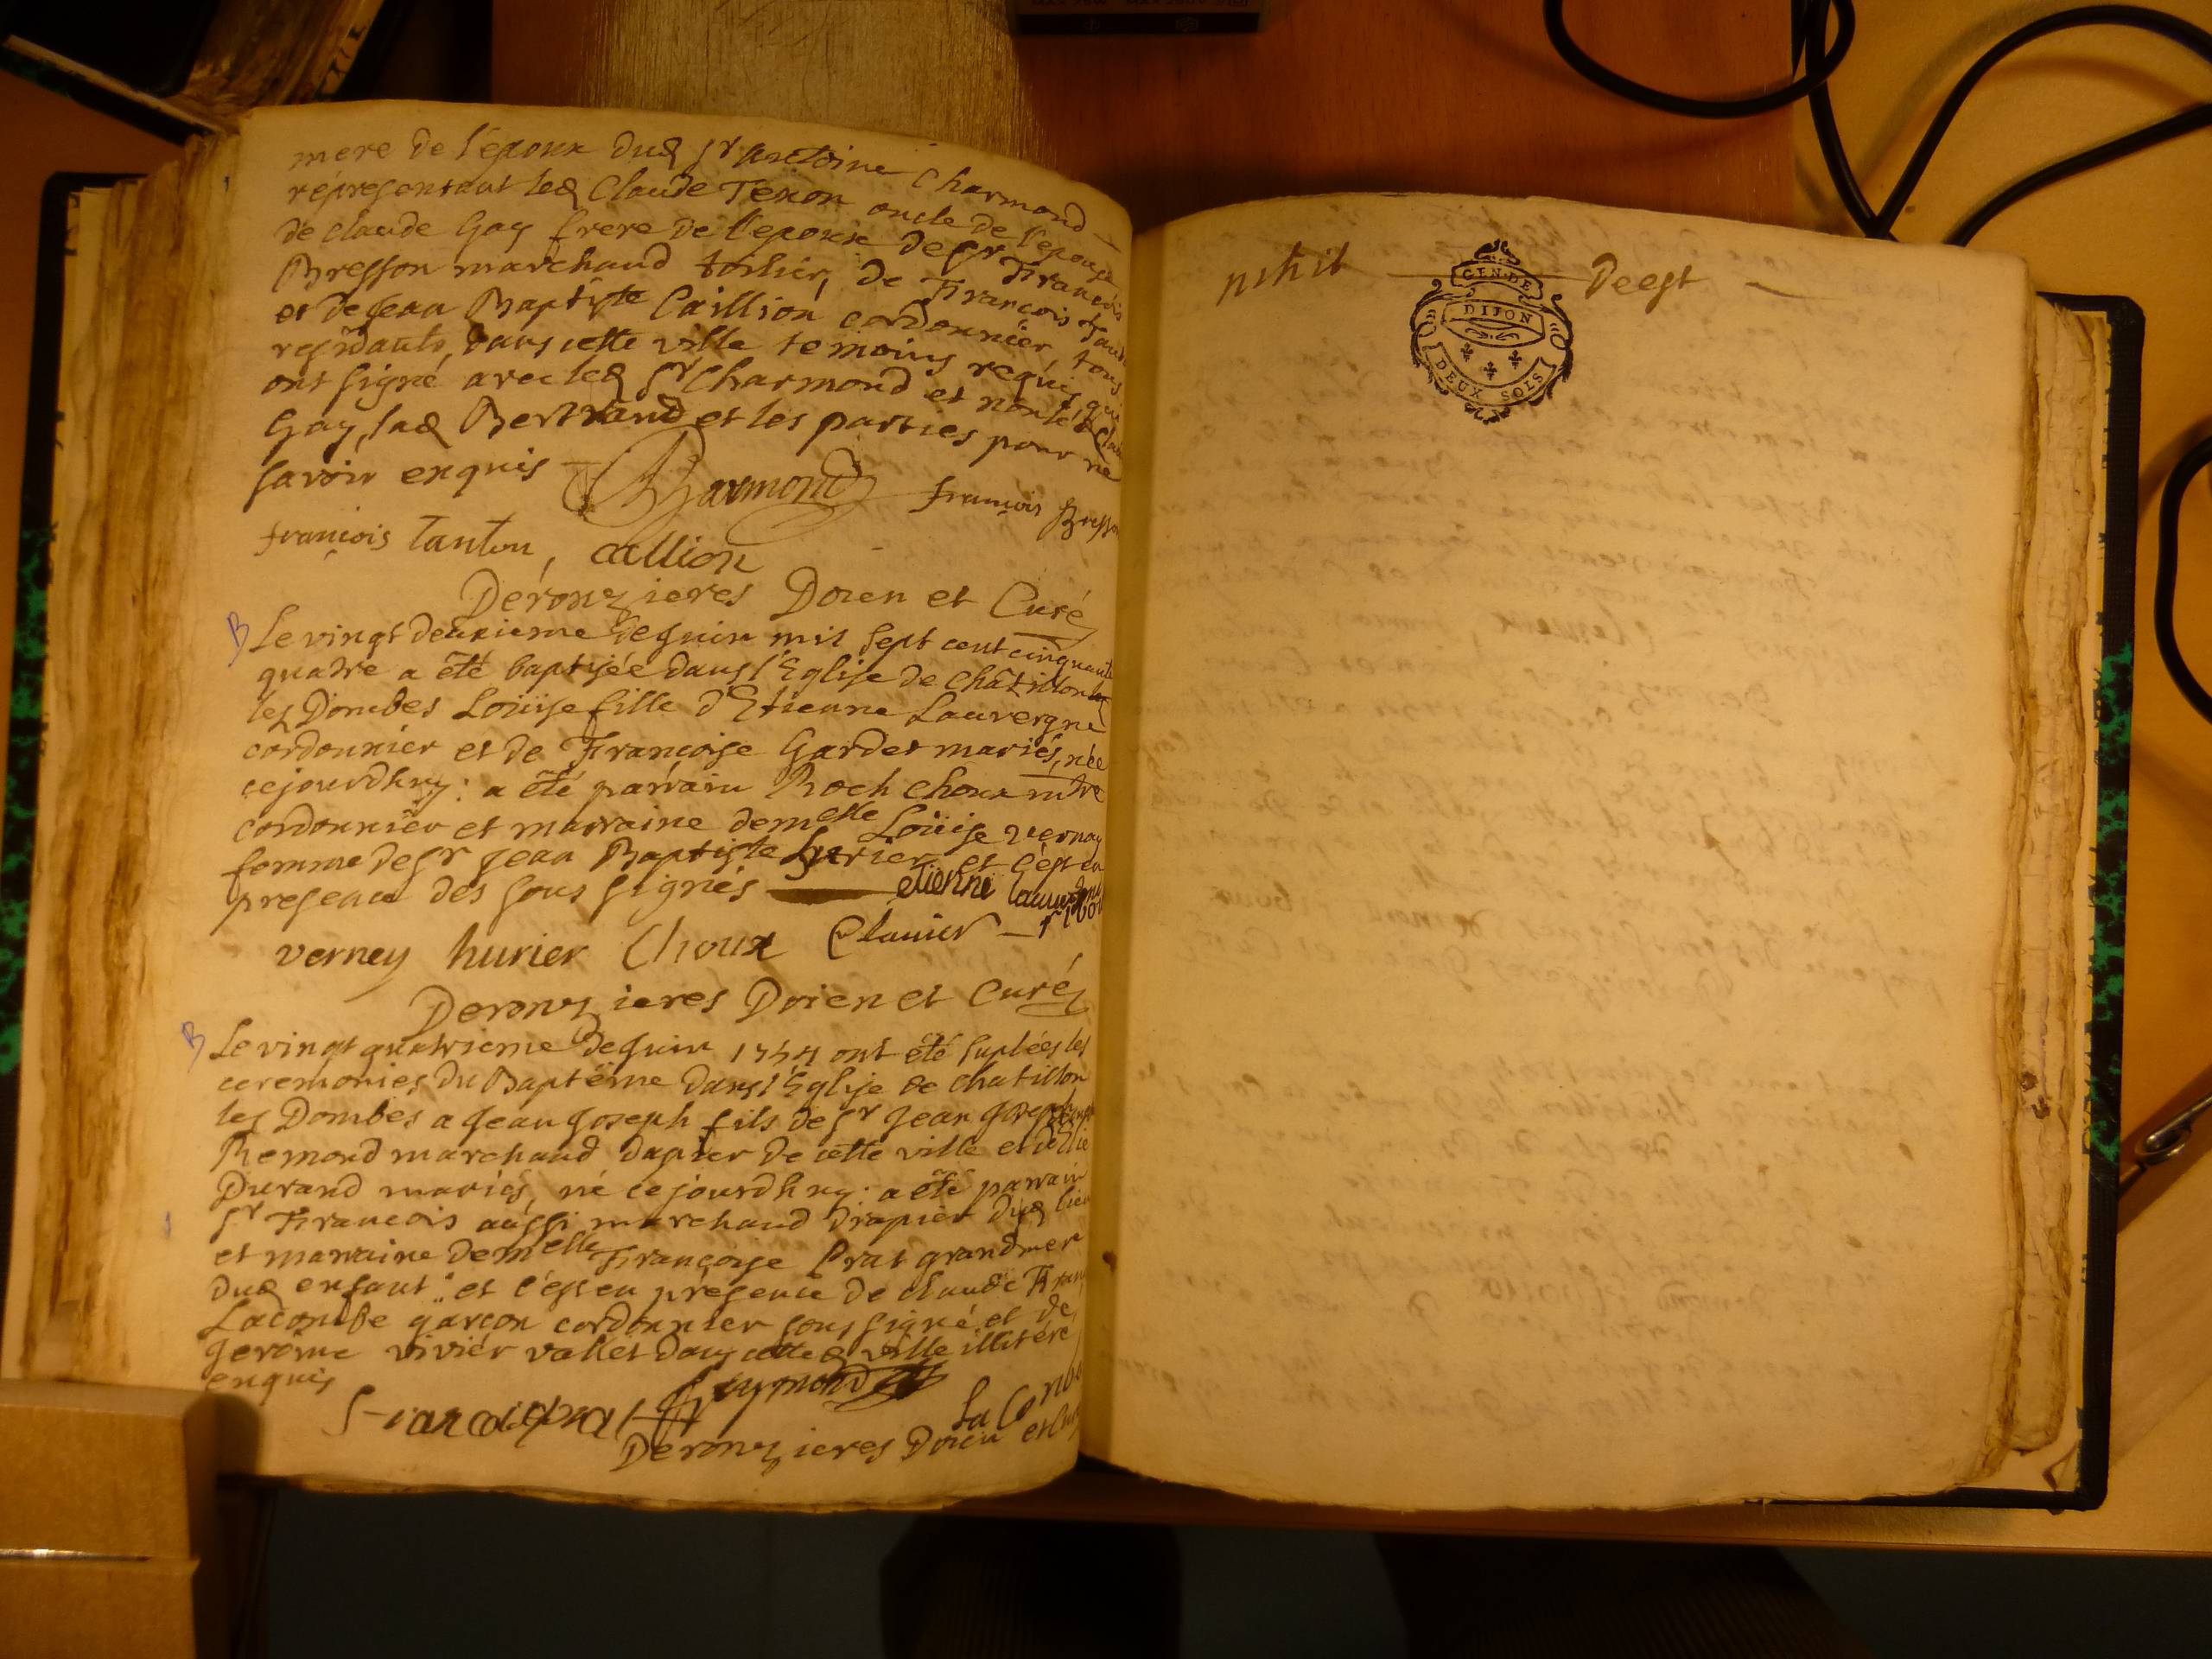 mere de l'époux dud Sr Antoine Charmond
représentant led Claude Tenon oncle de l'épouse
de claude Gay frere de l'epouse de Sr François
Bresson marchand toilier, de François
et de Jean Baptiste Caillion cordonnier, tous
résidants, dans cette ville temoins requis qui
ont signé avec led Sr Charmond et non led
Gay, lad Bertrand et les parties pour ne
savoir enquis Charmond françois Bresson
françois Tanton, callion
Deronzieres Doien et Curé
B Le vingt deuxieme de Juin mil sept cent cinquante
quatre a été baptisée dans l'Eglise de Châtillon
les Dombes Loüise fille d'Etienne Lauvergne
cordonnier et de Françoise Gardet mariés, née
cejourdhuy : a été parrain Roch Choux mtre
cordonnier et marraine demelle Loüise vernay
femme de Sr Jean Baptiste hurier et c'est en
presence des sous signés etienne
verney hurier Choux Clanier
Deronzieres Doien et Curé
B Le vingt quatrieme de Juin 1754 ont été suplées les
ceremonies du Baptême dans l'Eglise de Chatillon
les Dombes a Jean Joseph fils de Sr Jean Joseph
Remond marchand dapier de cette ville et
Durand mariés, né cejourdhuy : a été parrain
Sr François aussi marchand drapier dud lieu
et marraine demelle Françoise Prat grandmer
dud enfant : et c'est en présence de claude Fran
Lacombe garçon cordonnier sous signé et de
Jerôme vivier vallet dans cette d ville illitéré
enquis
Reymond
La Combe
Deronzieres Doien et Curé
nihil Deest
GEN. DE
DIJON
DEUX SOLS